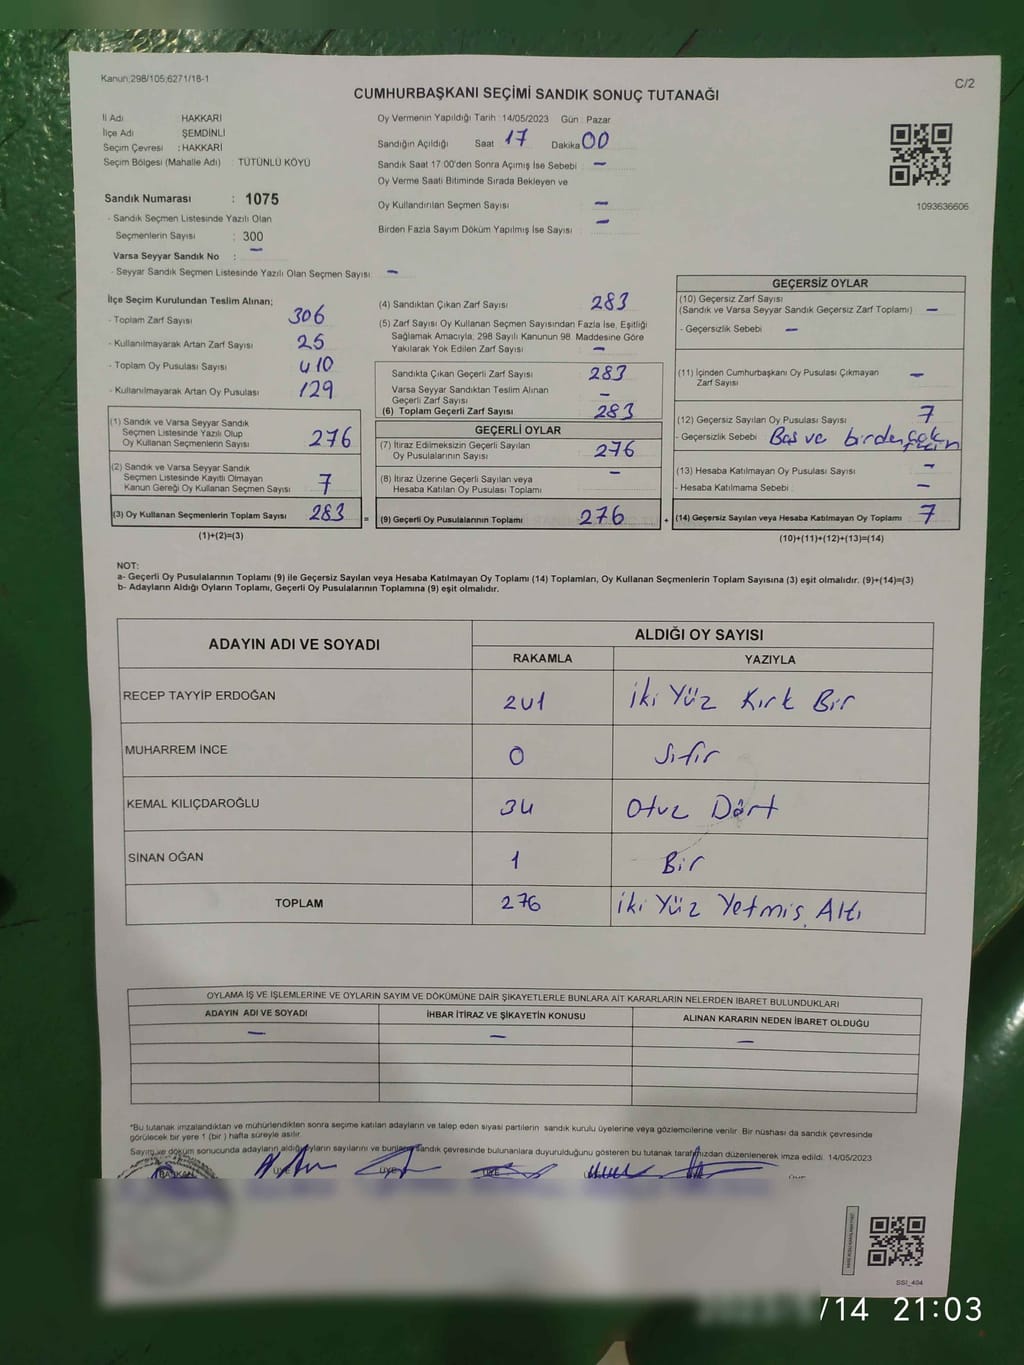 Kanun;298/105;6271/18-1
C/2
CUMHURBAŞKANI SEÇİMİ SANDIK SONUÇ TUTANAĞI
İl Adı : HAKKARI
İlçe Adı : ŞEMDİNLİ
Seçim Çevresi : HAKKARI
Seçim Bölgesi (Mahalle Adı) : TÜTÜNLÜ KÖYÜ
Sandık Numarası : 1075
- Sandık Seçmen Listesinde Yazılı Olan
Seçmenlerin Sayısı : 300
Varsa Seyyar Sandık No : –
- Seyyar Sandık Seçmen Listesinde Yazılı Olan Seçmen Sayısı: –
Oy Vermenin Yapıldığı Tarih : 14/05/2023 Gün : Pazar
Sandığın Açıldığı Saat 17 Dakika 00
Sandık Saat 17:00'den Sonra Açımış İse Sebebi : –
Oy Verme Saati Bitiminde Sırada Bekleyen ve
Oy Kullandırılan Seçmen Sayısı : –
Birden Fazla Sayım Döküm Yapılmış İse Sayısı : –
1093636606
İlçe Seçim Kurulundan Teslim Alınan;
- Toplam Zarf Sayısı 306
- Kullanılmayarak Artan Zarf Sayısı 25
- Toplam Oy Pusulası Sayısı 410
- Kullanılmayarak Artan Oy Pusulası 129
(1) Sandık ve Varsa Seyyar Sandık
Seçmen Listesinde Yazılı Olup
Oy Kullanan Seçmenlerin Sayısı 276
(2) Sandık ve Varsa Seyyar Sandık
Seçmen Listesinde Kayıtlı Olmayan
Kanun Gereği Oy Kullanan Seçmen Sayısı 7
(3) Oy Kullanan Seçmenlerin Toplam Sayısı 283 =
(1)+(2)=(3)
(4) Sandıktan Çıkan Zarf Sayısı 283
(5) Zarf Sayısı Oy Kullanan Seçmen Sayısından Fazla İse, Eşitliği
Sağlamak Amacıyla; 298 Sayılı Kanunun 98. Maddesine Göre
Yakılarak Yok Edilen Zarf Sayısı –
Sandıkta Çıkan Geçerli Zarf Sayısı 283
Varsa Seyyar Sandıktan Teslim Alınan
Geçerli Zarf Sayısı –
(6) Toplam Geçerli Zarf Sayısı 283
GEÇERLİ OYLAR
(7) İtiraz Edilmeksizin Geçerli Sayılan
Oy Pusulalarının Sayısı 276
(8) İtiraz Üzerine Geçerli Sayılan veya
Hesaba Katılan Oy Pusulası Toplamı –
(9) Geçerli Oy Pusulalarının Toplamı 276 +
GEÇERSİZ OYLAR
(10) Geçersiz Zarf Sayısı
(Sandık ve Varsa Seyyar Sandık Geçersiz Zarf Toplamı) –
- Geçersizlik Sebebi –
(11) İçinden Cumhurbaşkanı Oy Pusulası Çıkmayan
Zarf Sayısı –
(12) Geçersiz Sayılan Oy Pusulası Sayısı 7
- Geçersizlik Sebebi Boş ve birden çok
(13) Hesaba Katılmayan Oy Pusulası Sayısı –
- Hesaba Katılmama Sebebi –
(14) Geçersiz Sayılan veya Hesaba Katılmayan Oy Toplamı 7
(10)+(11)+(12)+(13)=(14)
NOT:
a- Geçerli Oy Pusulalarının Toplamı (9) ile Geçersiz Sayılan veya Hesaba Katılmayan Oy Toplamı (14) Toplamları, Oy Kullanan Seçmenlerin Toplam Sayısına (3) eşit olmalıdır. (9)+(14)=(3)
b- Adayların Aldığı Oyların Toplamı, Geçerli Oy Pusulalarının Toplamına (9) eşit olmalıdır.
ADAYIN ADI VE SOYADI ALDIĞI OY SAYISI
RAKAMLA YAZIYLA
RECEP TAYYİP ERDOĞAN 241 İki Yüz Kırk Bir
MUHARREM İNCE 0 Sıfır
KEMAL KILIÇDAROĞLU 34 Otuz Dört
SİNAN OĞAN 1 Bir
TOPLAM 276 İki Yüz Yetmiş Altı
OYLAMA İŞ VE İŞLEMLERİNE VE OYLARIN SAYIM VE DÖKÜMÜNE DAİR ŞİKAYETLERLE BUNLARA AİT KARARLARIN NELERDEN İBARET BULUNDUKLARI
ADAYIN ADI VE SOYADI İHBAR İTİRAZ VE ŞİKAYETİN KONUSU ALINAN KARARIN NEDEN İBARET OLDUĞU
– – –
*Bu tutanak imzalandıktan ve mühürlendikten sonra seçime katılan adayların ve talep eden siyasi partilerin sandık kurulu üyelerine veya gözlemcilerine verilir. Bir nüshası da sandık çevresinde
görülecek bir yere 1 (bir ) hafta süreyle asılır.
Sayım ve döküm sonucunda adayların aldığı oyların sayılarını ve bunların sandık çevresinde bulunanlara duyurulduğunu gösteren bu tutanak tarafımızdan düzenlenerek imza edildi. 14/05/2023
BAŞKAN ÜYE ÜYE ÜYE
SSİ_404
/14 21:03